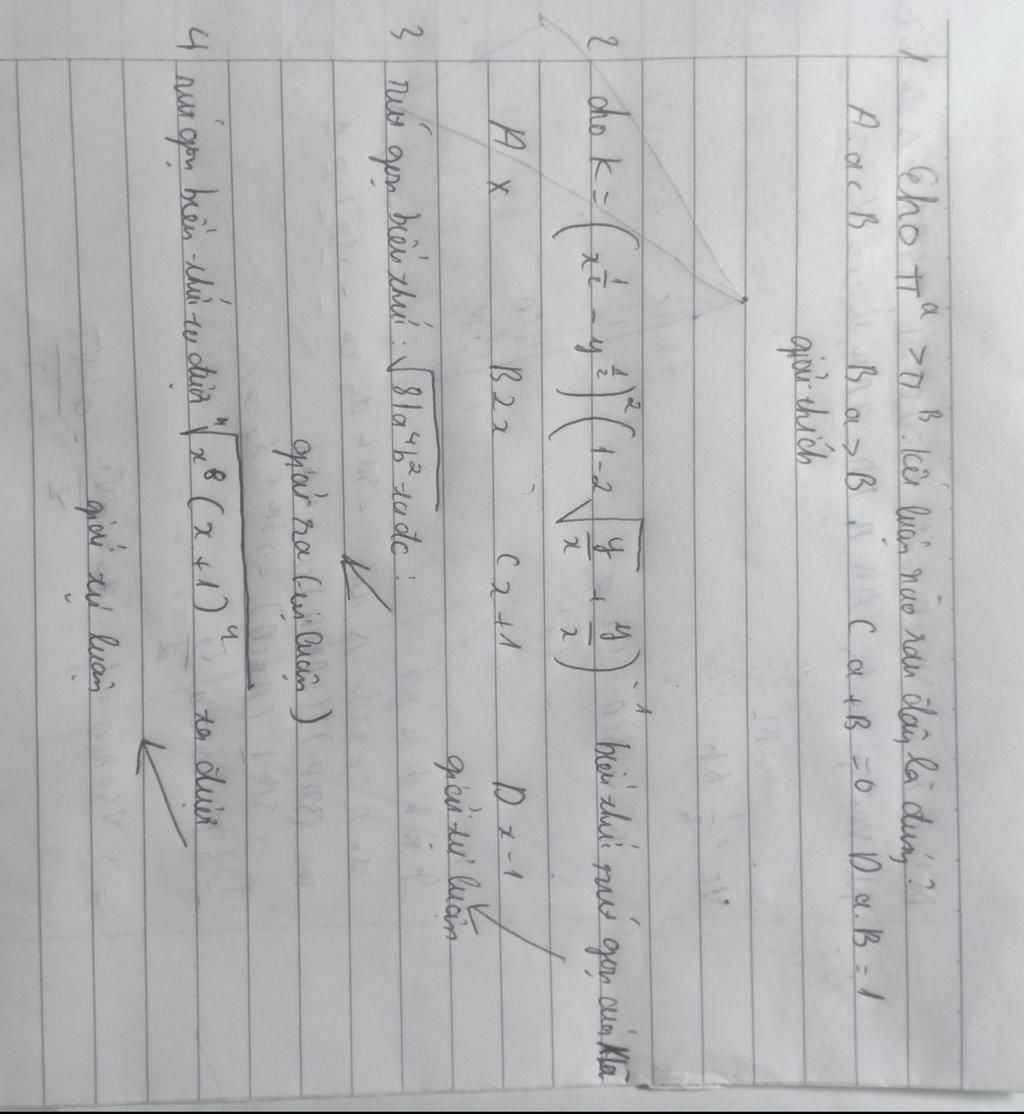 1 Cho π^a > π^B. kết luận nào sau đây là đúng?
A. a < B B a > B C a + B = 0 D a.B = 1
giải thích
2 cho K = (x^{1/2} - y^{1/2})^2 (1 - 2√(y/x) + y/x)^{-1} biểu thức rút gọn của K là
A x B 2x C x + 1 D x - 1
giải tự luận
3 rút gọn biểu thức: √(81a^4b^2) ta đc:
giải ra (tự luận)
4 rút gọn biểu thức ta được ⁴√(x^8(x + 1)^4) ta được
giải tự luận